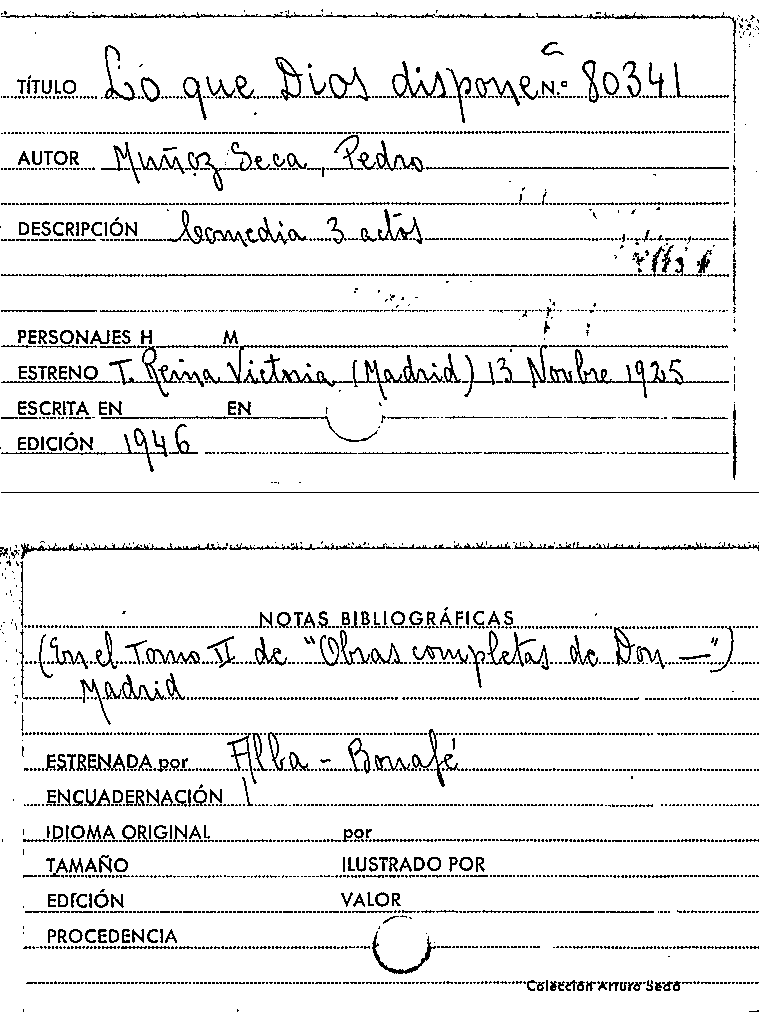 C
TÍTULO Lo que Dios dispone N.º 80341
AUTOR Muñoz Seca, Pedro
DESCRIPCIÓN Comedia 3 actos
PERSONAJES H M
ESTRENO T. Reina Victoria (Madrid) 13 Novbre 1925
ESCRITA EN EN
EDICIÓN 1946
NOTAS BIBLIOGRÁFICAS
(En el Tomo II de "Obras completas de Don —")
Madrid
ESTRENADA por Alba - Bonafé
ENCUADERNACIÓN
IDIOMA ORIGINAL por
TAMAÑO ILUSTRADO POR
EDICIÓN VALOR
PROCEDENCIA
Colección Arturo Sedó